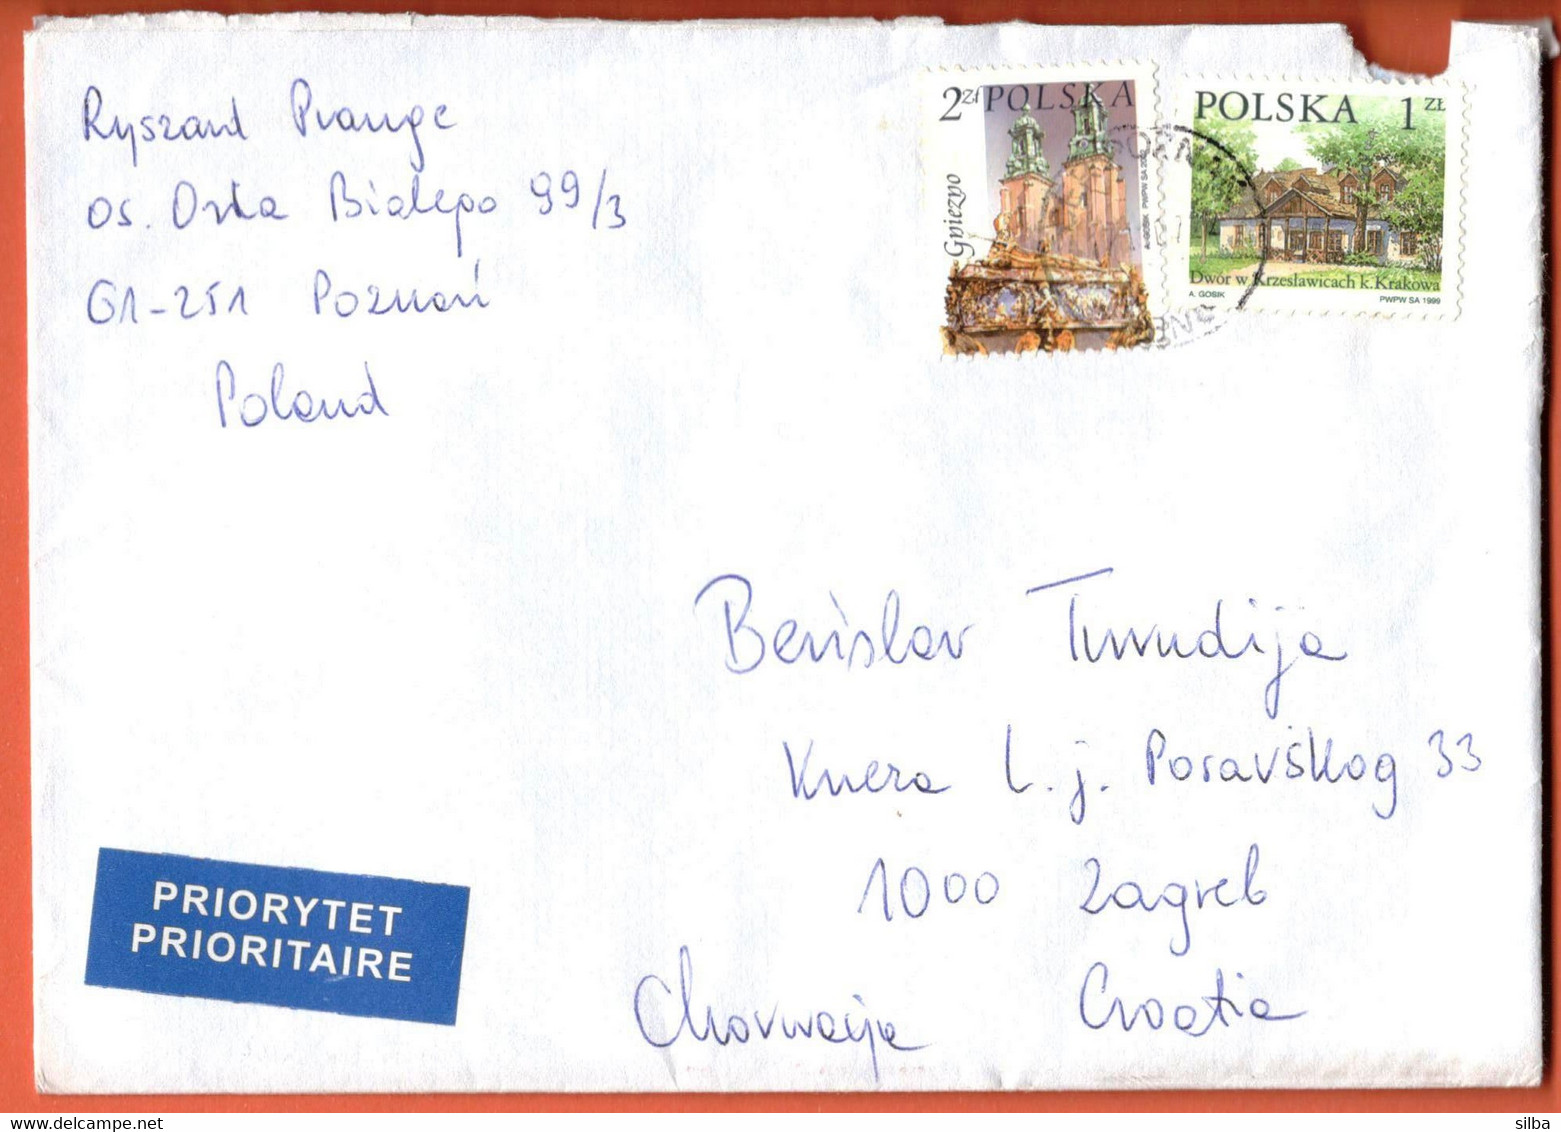 Ryszard Prange
os. Orła Białego 99/3
61-251 Poznań
Poland
2zł POLSKA
Gniezno
POLSKA 1 ZŁ
Dwór w Krzesławicach k. Krakowa
A. GOSIK PWPW SA 1999
Berislav
Knera L.j. Posavskog 33
1000 Zagreb
Chorwacja Croatia
PRIORYTET
PRIORITAIRE
www.delcampe.net
silba